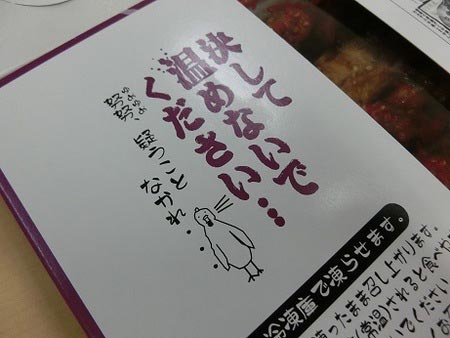 決して
温めないで
ください…
ゆめゆめ
努努、疑うこと
なかれ
冷凍庫で凍らせます。
ったまま召し上がります。
(常温)されると食べや
いでください